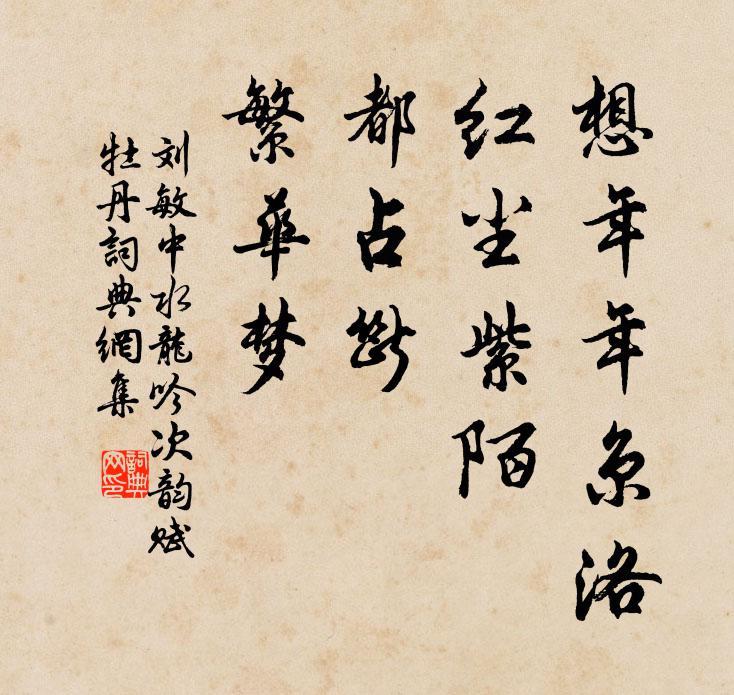 想年年京洛
红尘紫陌
都占断
繁华梦
刘敏中水龍吟次韵赋
牡丹詞典網集
詞典网印